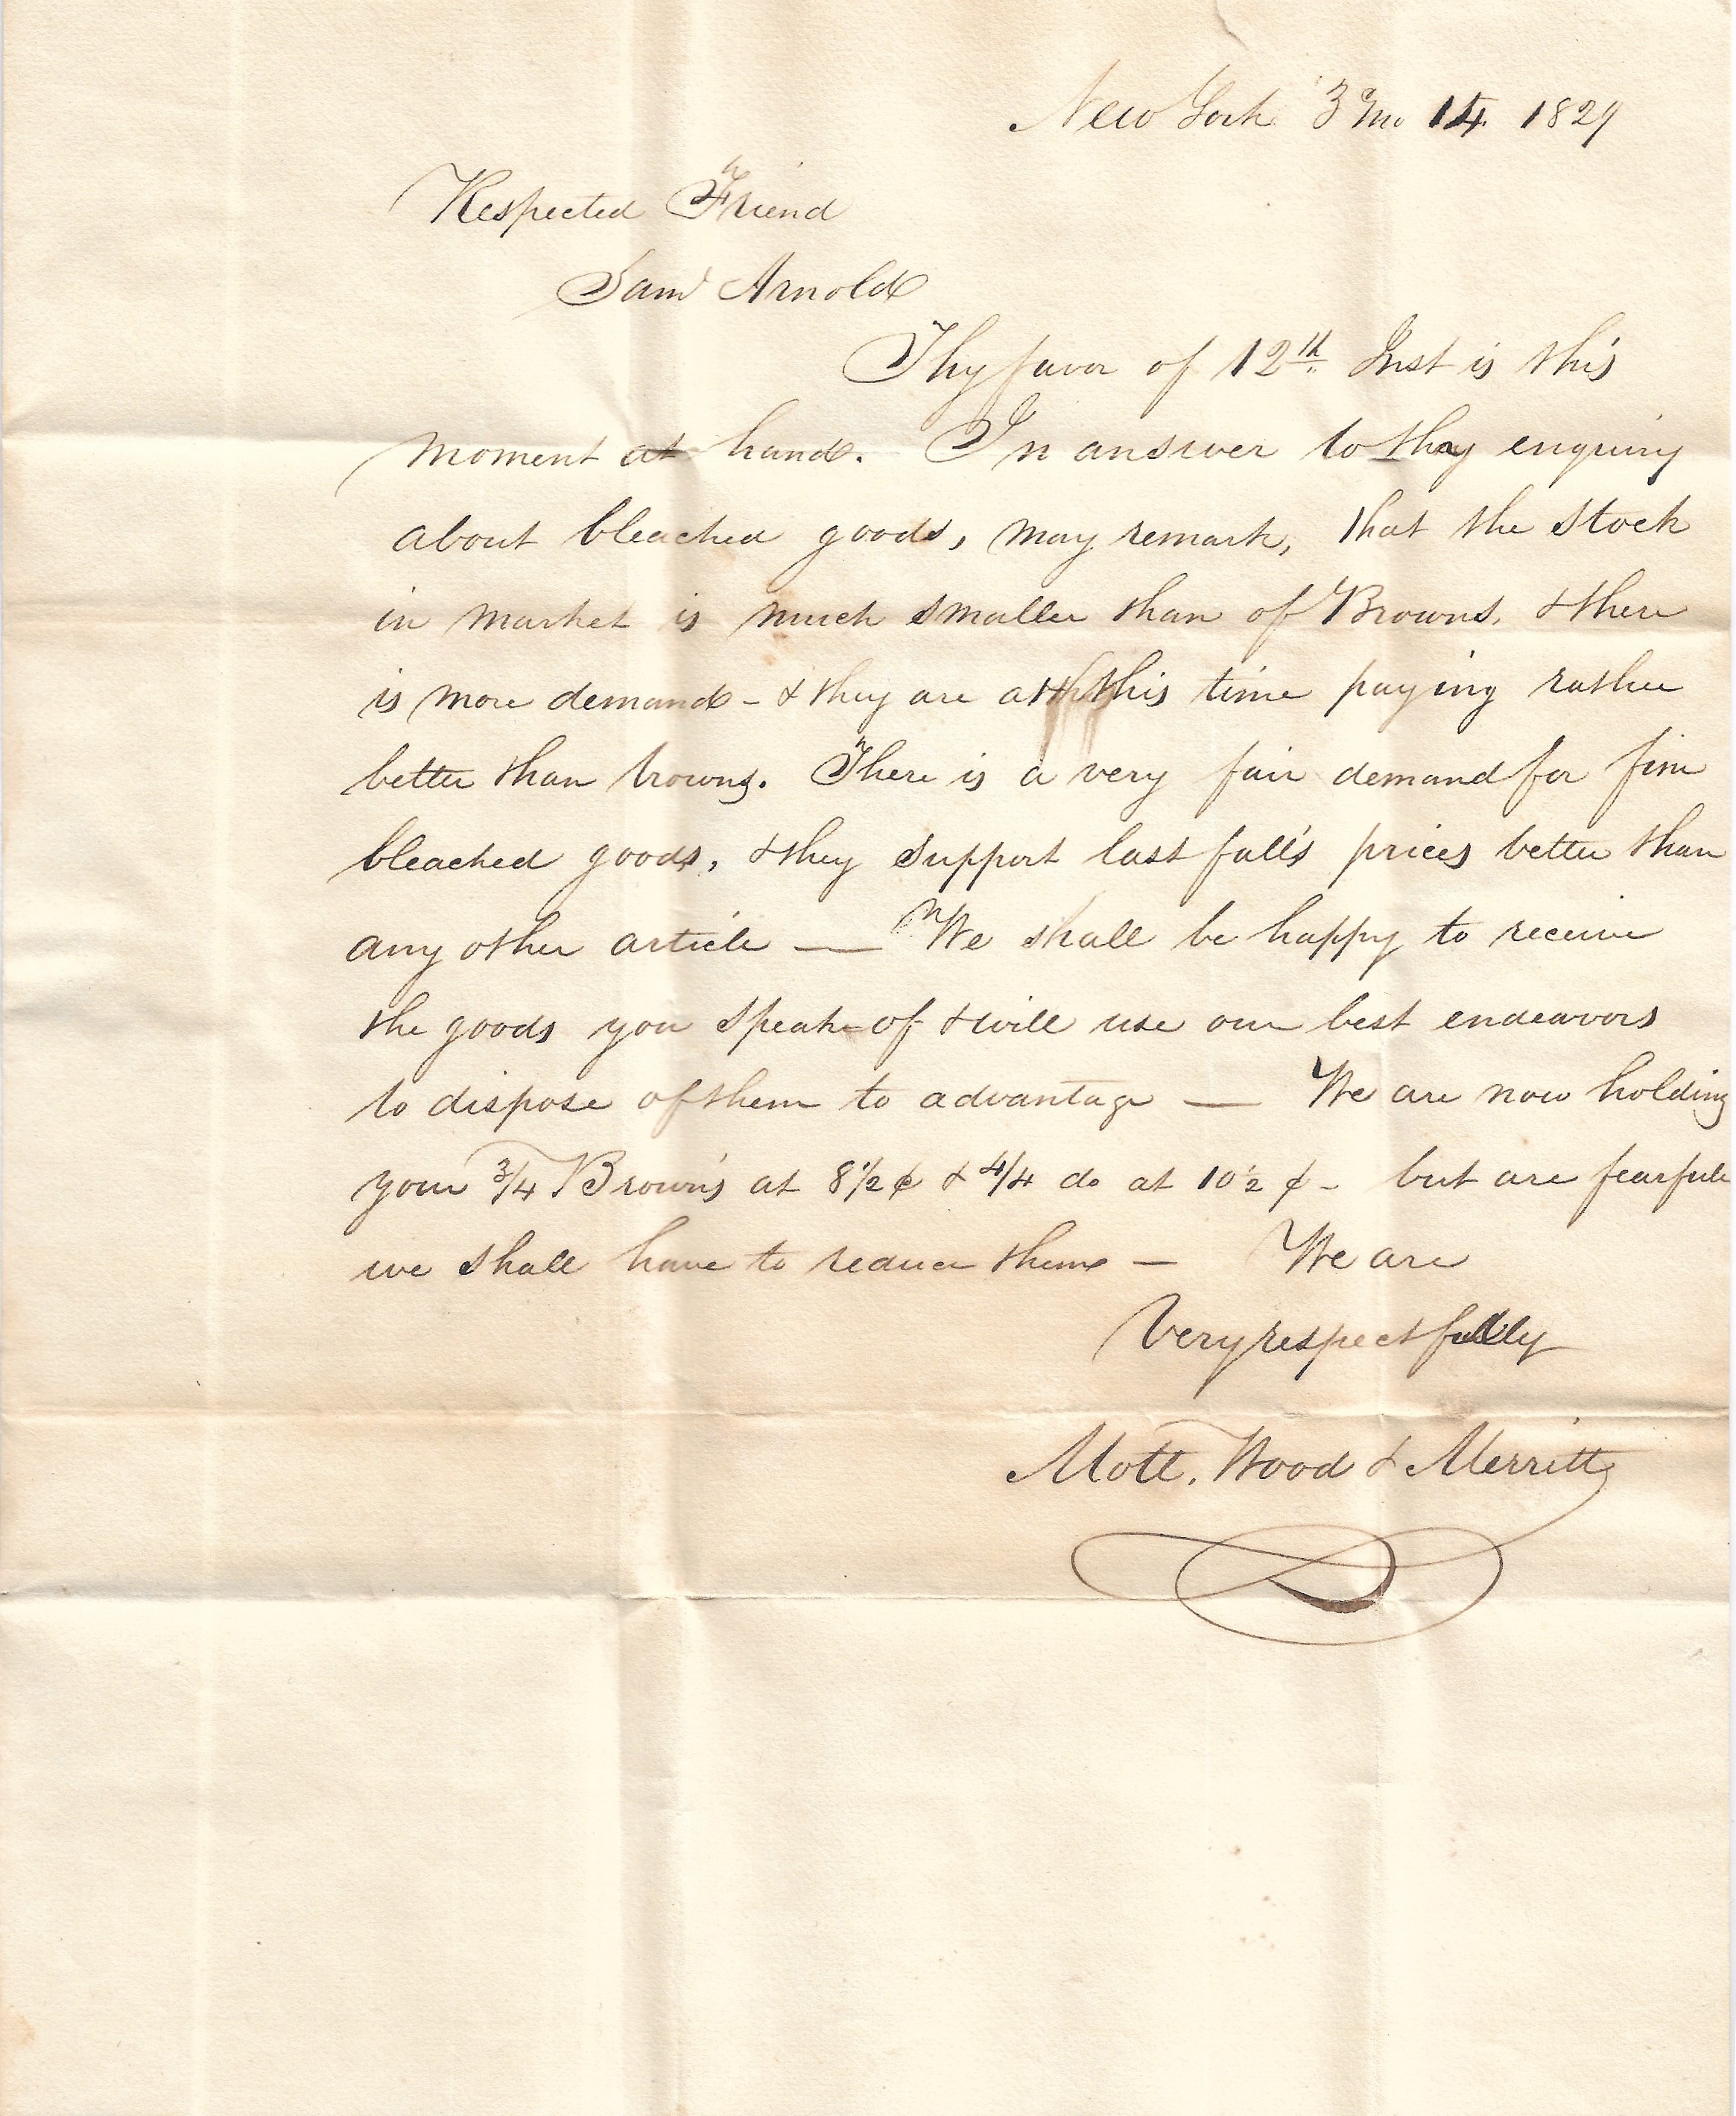 New York 3 mo 14. 1829
Respected Friend
Saml Arnold
Thy favor of 12th Inst is this
moment at hand. In answer to thy enquiry
about bleached goods, may remark, that the stock
in market is much smaller than of Browns, & there
is more demand - & they are at this time paying rather
better than browns. There is a very fair demand for fine
bleached goods, & they support last fall's prices better than
any other article — We shall be happy to receive
the goods you speak of & will use our best endeavors
to dispose of them to advantage — We are now holding
your 3/4 Browns at 8 1/2 ¢ & 4/4 do at 10 1/2 ¢ - but are fearful
we shall have to reduce them — We are
Very respectfully
Mott, Wood & Merritt